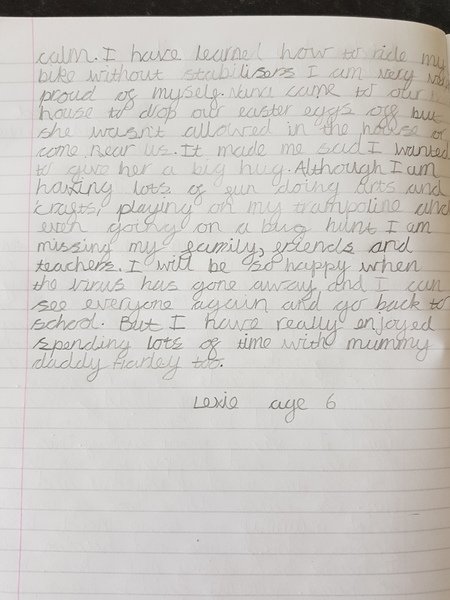 calm. I have learned how to ride my
bike without stabilisers I am very
proud of myself. Nana came to our
house to drop our easter eggs off but
she wasnt allowed in the house or
come near us. It made me sad I wanted
to give her a big hug. Although I am
having lots of fun doing arts and
crafts, playing on my trampoline and
even going on a bug hunt I am
missing my family, friends and
teachers. I will be so happy when
the virus has gone away and I can
see everyone again and go back to
school. But I have really enjoyed
spending lots of time with mummy
daddy Harley too.
Lexie age 6